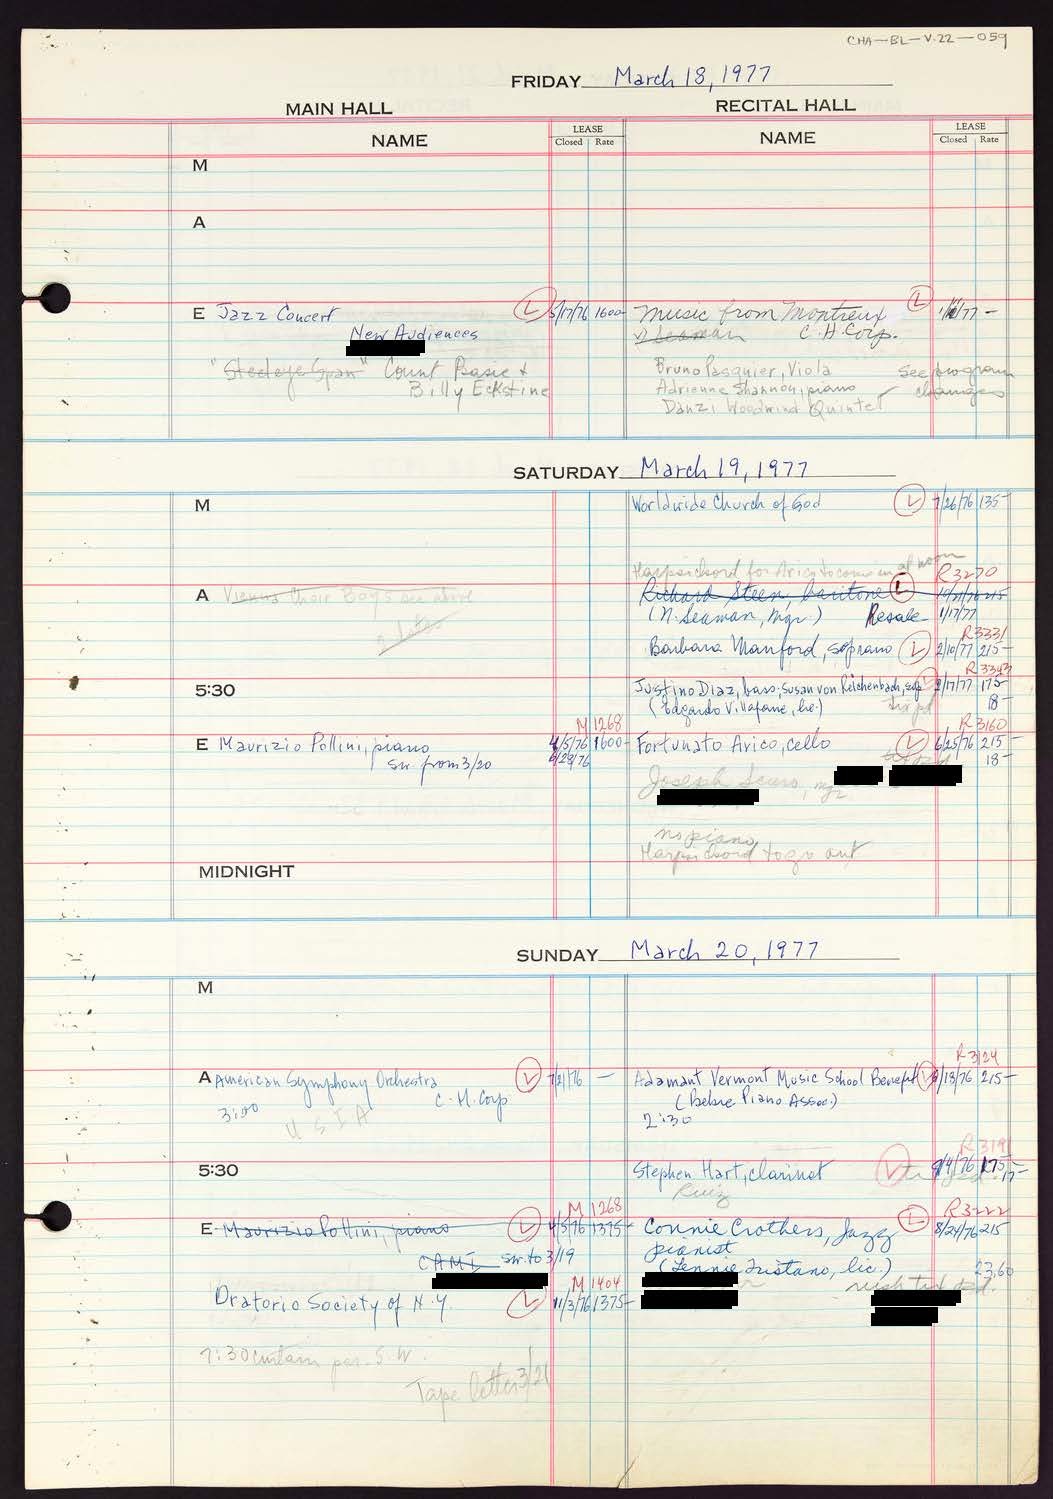 CHA-BL-V.22-059
FRIDAY March 18, 1977
MAIN HALL
RECITAL HALL
NAME
LEASE
Closed Rate
NAME
LEASE
Closed Rate
M
A
E Jazz Concert L 5/17/76 1600-
New Audiences
"Steeleye Span" Count Basie &
Billy Eckstine
Music from Montreux L 77 -
Seaman C.H. Corp.
Bruno Pasquier, Viola See program
Adrienne Shannon, piano changes
Danzi Woodwind Quintet
SATURDAY March 19, 1977
M
Worldwide Church of God L 7/26/76 135-
Harpsichord for Arico to come in at noon
R3270
A Vienna Choir Boys see above
Richard Steen, baritone L 215
(N. Seaman, Mgr.) Resale 1/17/77
R3331
Barbara Manford, soprano L 2/10/77 215-
R3343
5:30
Justino Diaz, bass; Susan von Reichenbach, sop L 2/17/77 175-
(Edgardo Villafane, lic.) 18-
M1268
R3160
E Maurizio Pollini, piano 4/5/76 1600-
sw. from 3/20 6/28/76
Fortunato Arico, cello L 6/25/76 215-
18-
Joseph Scuro, mgr
no piano
Harpsichord to go out
MIDNIGHT
SUNDAY March 20, 1977
M
R3124
A American Symphony Orchestra L 7/21/76 -
C.H. Corp
3:00
USIA
Adamant Vermont Music School Benefit L 215-
(Bebre Piano Assoc.)
2:30
R3191
5:30
Stephen Hart, clarinet L 9/4/76 175
17-
Ruiz
M1268
R3222
E Maurizio Pollini, piano L 4/5/76 1375-
CAMI sw. to 3/19
Connie Crothers, Jazz L 8/24/76 215
pianist
(Lennie Tristano, lic.) 23.60
M1404
Oratorio Society of N.Y. L 11/3/76 1375-
7:30 curtain per S.W.
Tape letter 3/21